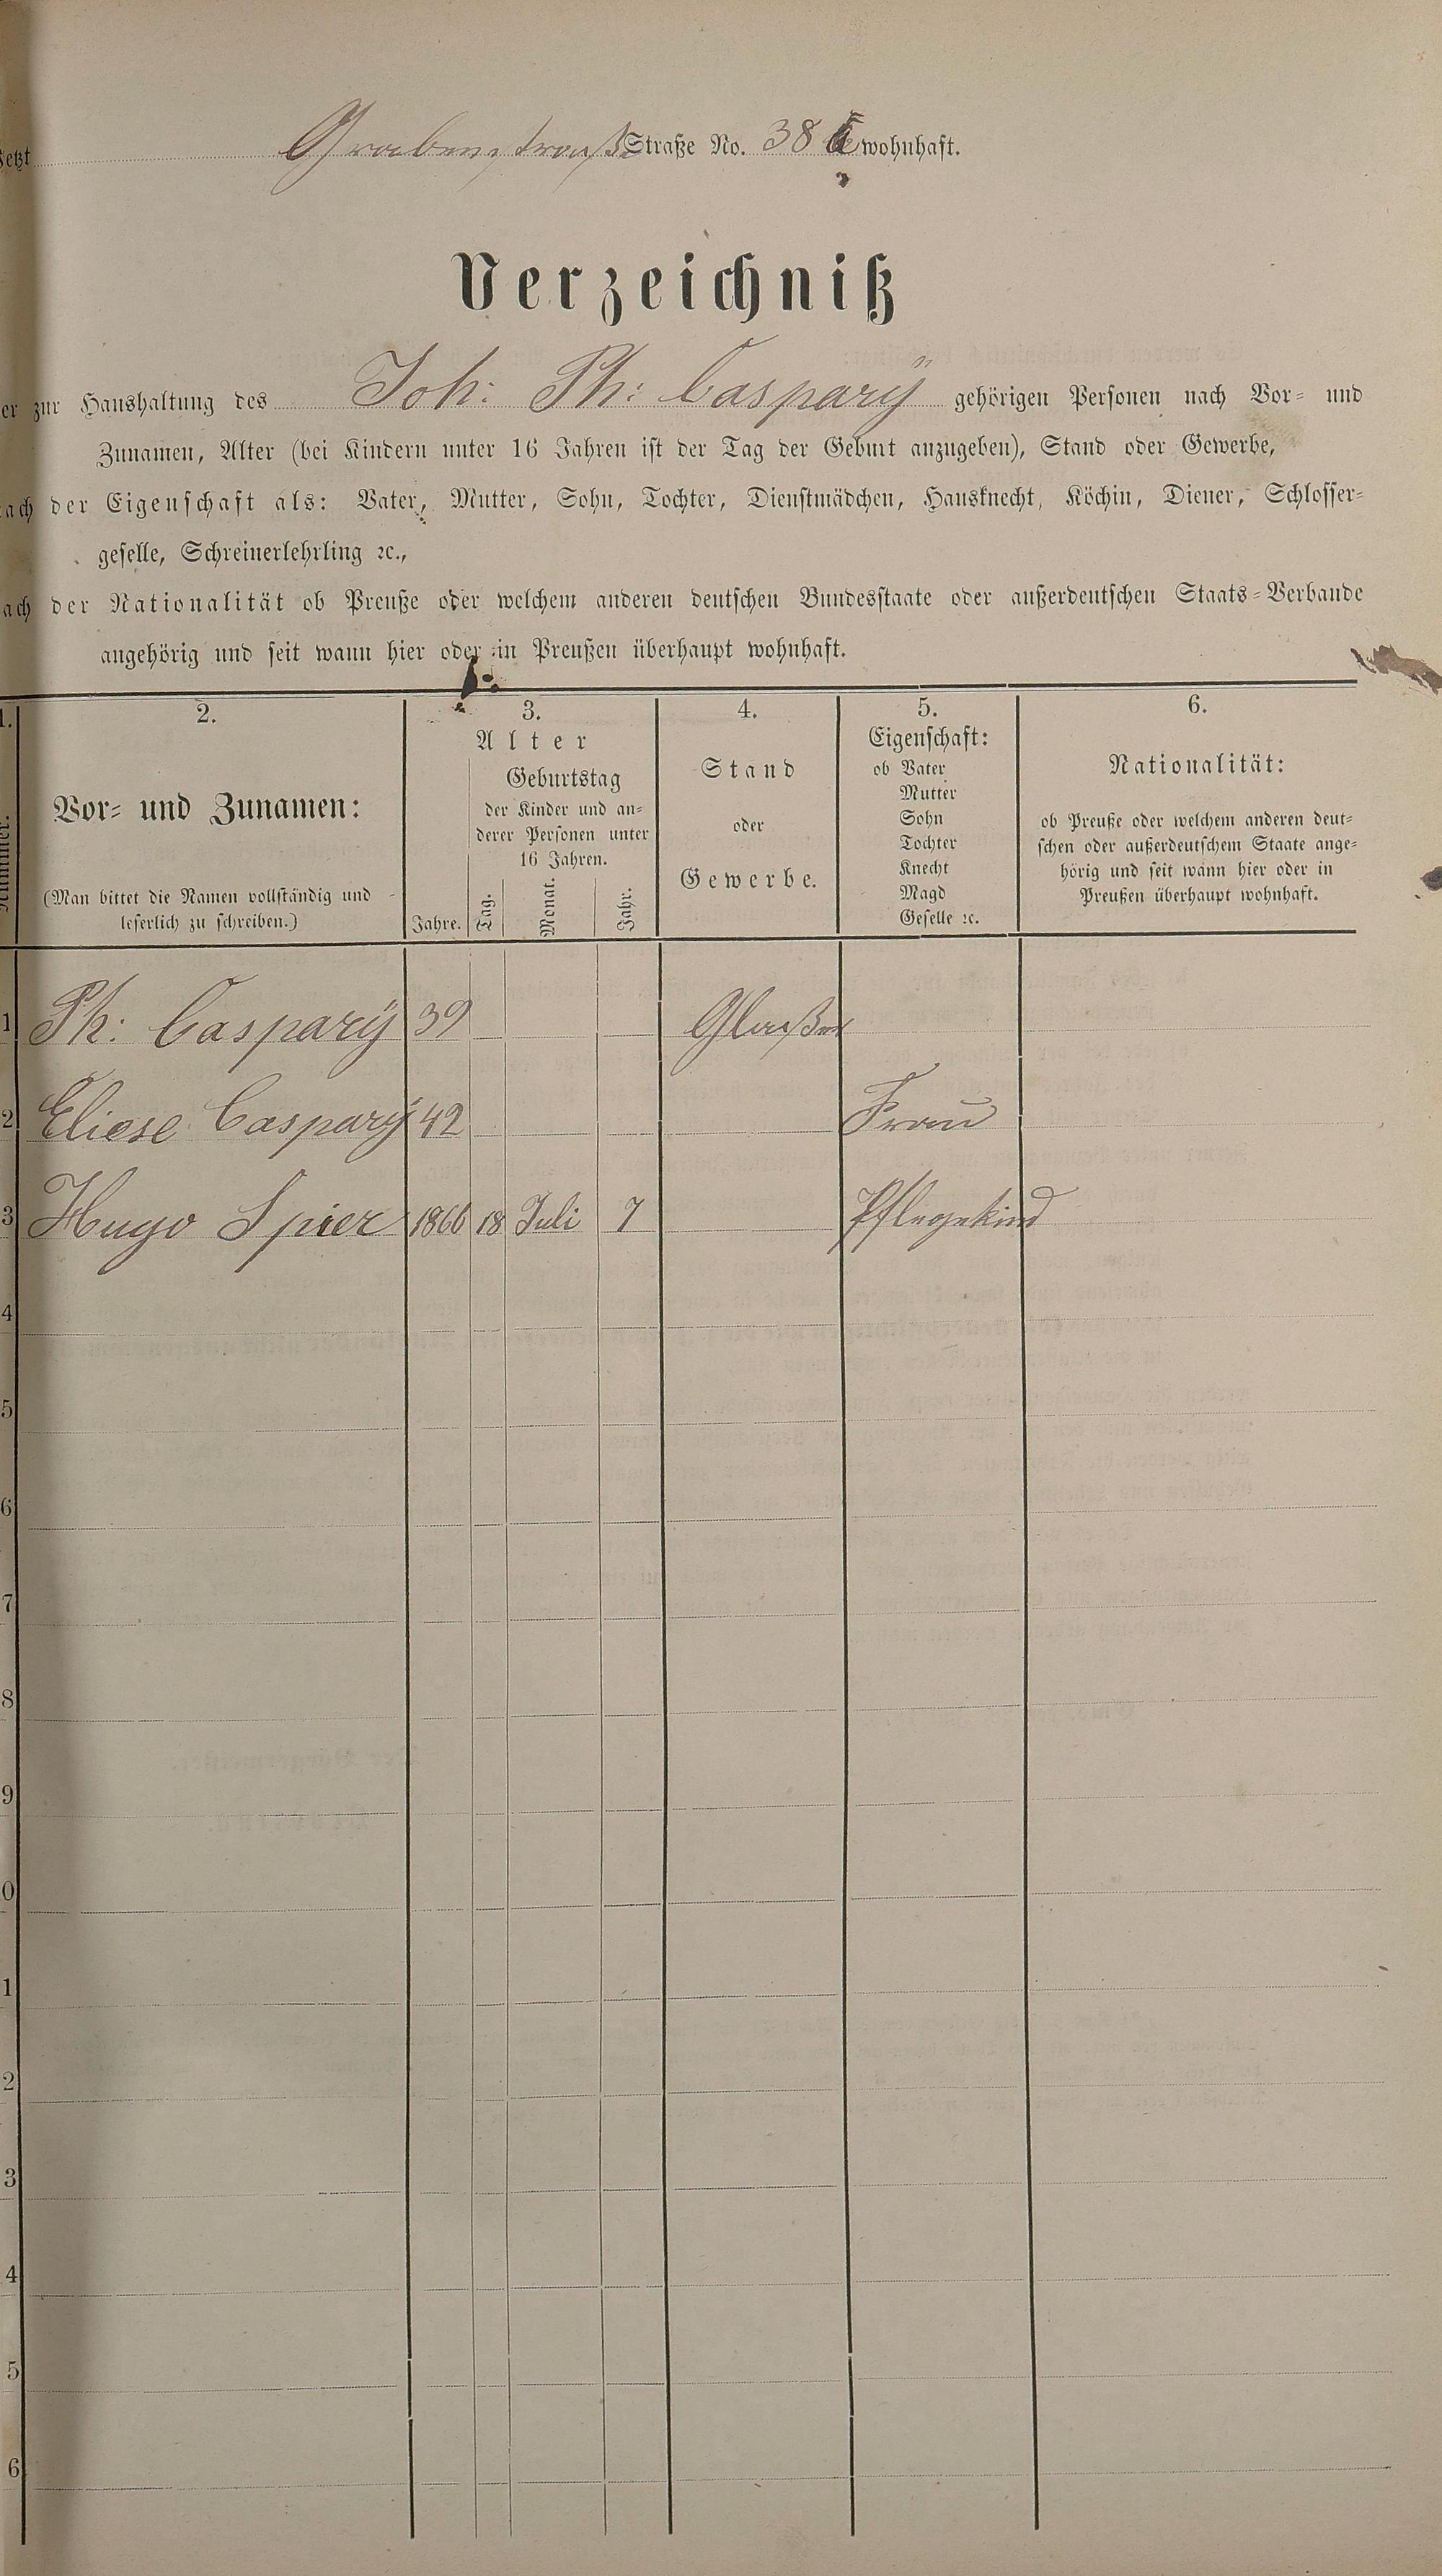 Jetzt Grabenstraße Straße No. 38 wohnhaft.
Verzeichniß
er zur Haushaltung des Joh: Ph: Caspary gehörigen Personen nach Vor- und
Zunamen, Alter (bei Kindern unter 16 Jahren ist der Tag der Geburt anzugeben), Stand oder Gewerbe,
ach der Eigenschaft als: Vater, Mutter, Sohn, Tochter, Dienstmädchen, Hausknecht, Köchin, Diener, Schlosser-
geselle, Schreinerlehrling ꝛc.,
ach der Nationalität ob Preuße oder welchem anderen deutschen Bundesstaate oder außerdeutschen Staats-Verbande
angehörig und seit wann hier oder in Preußen überhaupt wohnhaft.
1.
Nummer.
2.
Vor- und Zunamen:
(Man bittet die Namen vollständig und
leserlich zu schreiben.)
3.
Alter
Geburtstag
der Kinder und an-
derer Personen unter
16 Jahren.
Jahre. Tag. Monat. Jahr.
4.
Stand
oder
Gewerbe.
5.
Eigenschaft:
ob Vater
Mutter
Sohn
Tochter
Knecht
Magd
Geselle ꝛc.
6.
Nationalität:
ob Preuße oder welchem anderen deut-
schen oder außerdeutschem Staate ange-
hörig und seit wann hier oder in
Preußen überhaupt wohnhaft.
1 Ph: Caspary 39 Glaßer
2 Eliese Caspary 42 Frau
3 Hugo Spier 1866 18 Juli 7 Pflegekind
4
5
6
7
8
9
0
1
2
3
4
5
6